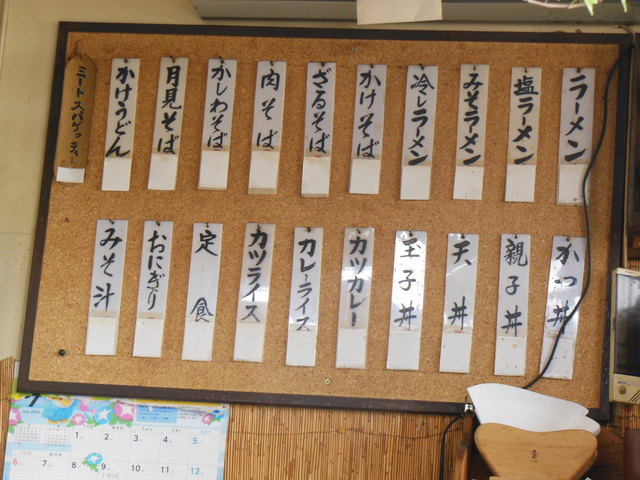 ラーメン
塩ラーメン
みそラーメン
冷しラーメン
かけそば
ざるそば
肉そば
かしわそば
月見そば
かけうどん
ミートスパゲッティー
かつ丼
親子丼
天丼
玉子丼
カツカレー
カレーライス
カツライス
定食
おにぎり
みそ汁
July 2014
TUE WED THU FRI SAT
1 2 3 4 5
SUN MON
6 7 8 9 10 11 12